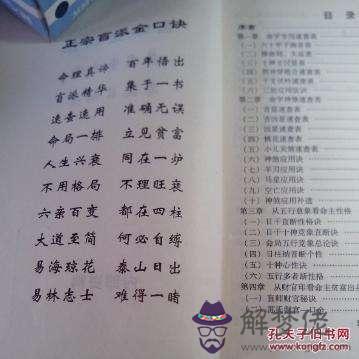 正宗盲派金口诀
命理真谛 百年悟出
盲派精华 集于一书
速查速用 准确无误
命局一排 立见贫富
人生兴衰 同在一炉
不用格局 不理旺衰
六亲百变 都在四柱
大道至简 何必自缚
易海琼花 泰山日出
易林志士 难得一睹
目录
序言
第一章 命学常用速查表
(一)六十甲子纳音表
第二章 命学神煞速查表
(一)吉星速查表
(二)凶星速查表
(三)桃花速查表
(四)小儿关煞速查表
(六)神煞应用诀
(七)羊刃应用诀
(八)马星应用诀
(九)空亡应用诀
(十)神煞应用补遗
第三章 从五行意象看命主性格
(一)日干直断性格诀
(二)日干十神克应直断诀
(三)命局五行克象总论诀
(四)日柱纳音断个性
(五)十神心性诀
(六)五行多者断性格
第四章 从财官印看命主贫富吉
(一)盲师财官秘诀
解梦佬